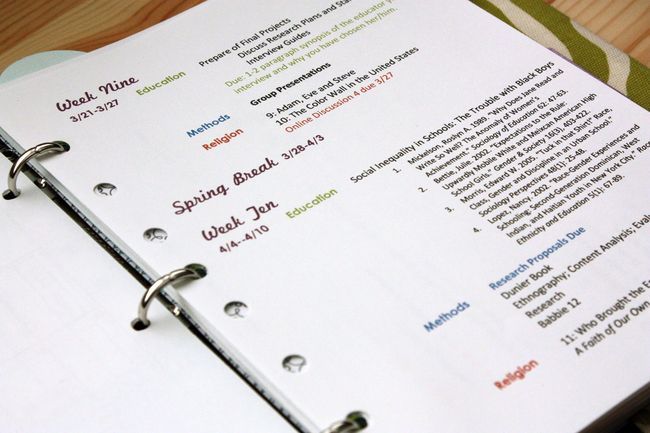 Week Nine
3/21-3/27
Education
Prepare of Final Projects
Discuss Research Plans and Sta
Interview Guides
Due: 1-2 paragraph synopsis of the educator
interview and why you have chosen her/him.
Group Presentations
Methods
9: Adam, Eve and Steve
10: The Color Wall in the United States
Religion
Online Discussion 4 due 3/27
Spring Break 3/28-4/3
Week Ten
4/4--4/10
Education
Social Inequality in Schools: The Trouble with Black Boys
1. Mickelson, Roslyn A. 1989. "Why Does Jane Read and
Write So Well? The Anomaly of Women's
Achievement." Sociology of Education 62: 47-63.
2. Bettie, Julie. 2002. "Exceptions to the Rule:
Upwardly Mobile White and Mexican American High
School Girls" Gender & Society 16(3), 403-422.
3. Morris, Edward W. 2005. "Tuck in that Shirt" Race,
Class, Gender and Discipline in an Urban School."
Sociology Perspectives 48(1): 25-48.
4. Lopez, Nancy. 2002. "Race-Gender Experiences and
Schooling: Second-Generation Dominican, West
Indian, and Haitian Youth in New York City." Race
Ethnicity and Education 5(1): 67-89.
Methods
Research Proposals Due
Dunier Book
Ethnography; Content Analysis; Evalu
Research
Babbie 12
Religion
11: Who Brought the
A Faith of Our Own